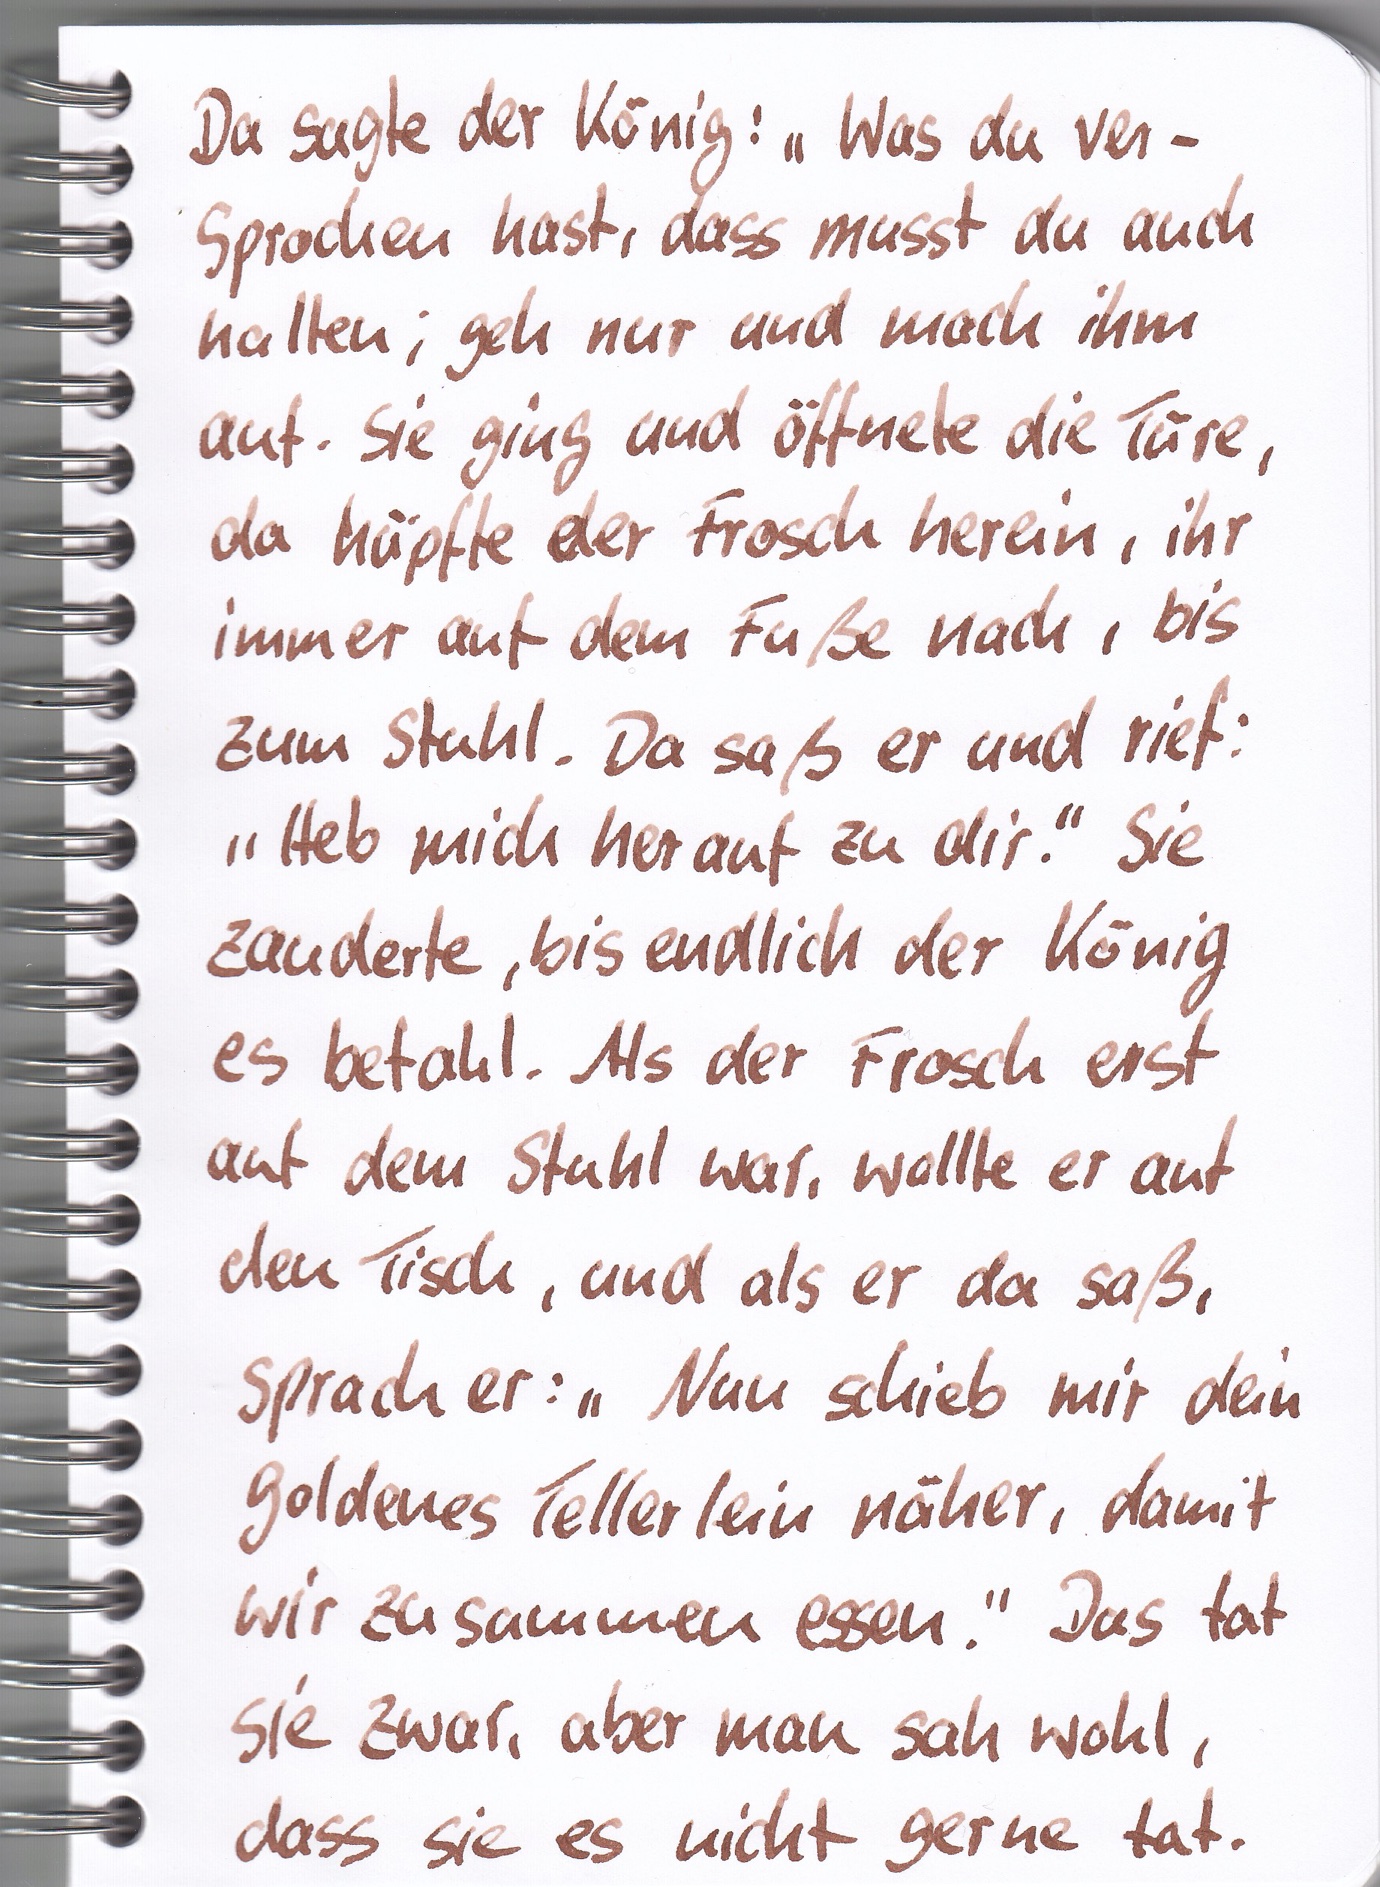 Da sagte der König: „Was du ver-
sprochen hast, dass musst du auch
halten; geh nur und mach ihm
auf. Sie ging und öffnete die Türe,
da hüpfte der Frosch herein, ihr
immer auf dem Fuße nach, bis
zum Stuhl. Da saß er und rief:
„Heb mich herauf zu dir.“ Sie
zauderte, bis endlich der König
es befahl. Als der Frosch erst
auf dem Stuhl war, wollte er auf
den Tisch, und als er da saß,
sprach er: „Nun schieb mir dein
goldenes Tellerlein näher, damit
wir zusammen essen.“ Das tat
sie zwar, aber man sah wohl,
dass sie es nicht gerne tat.